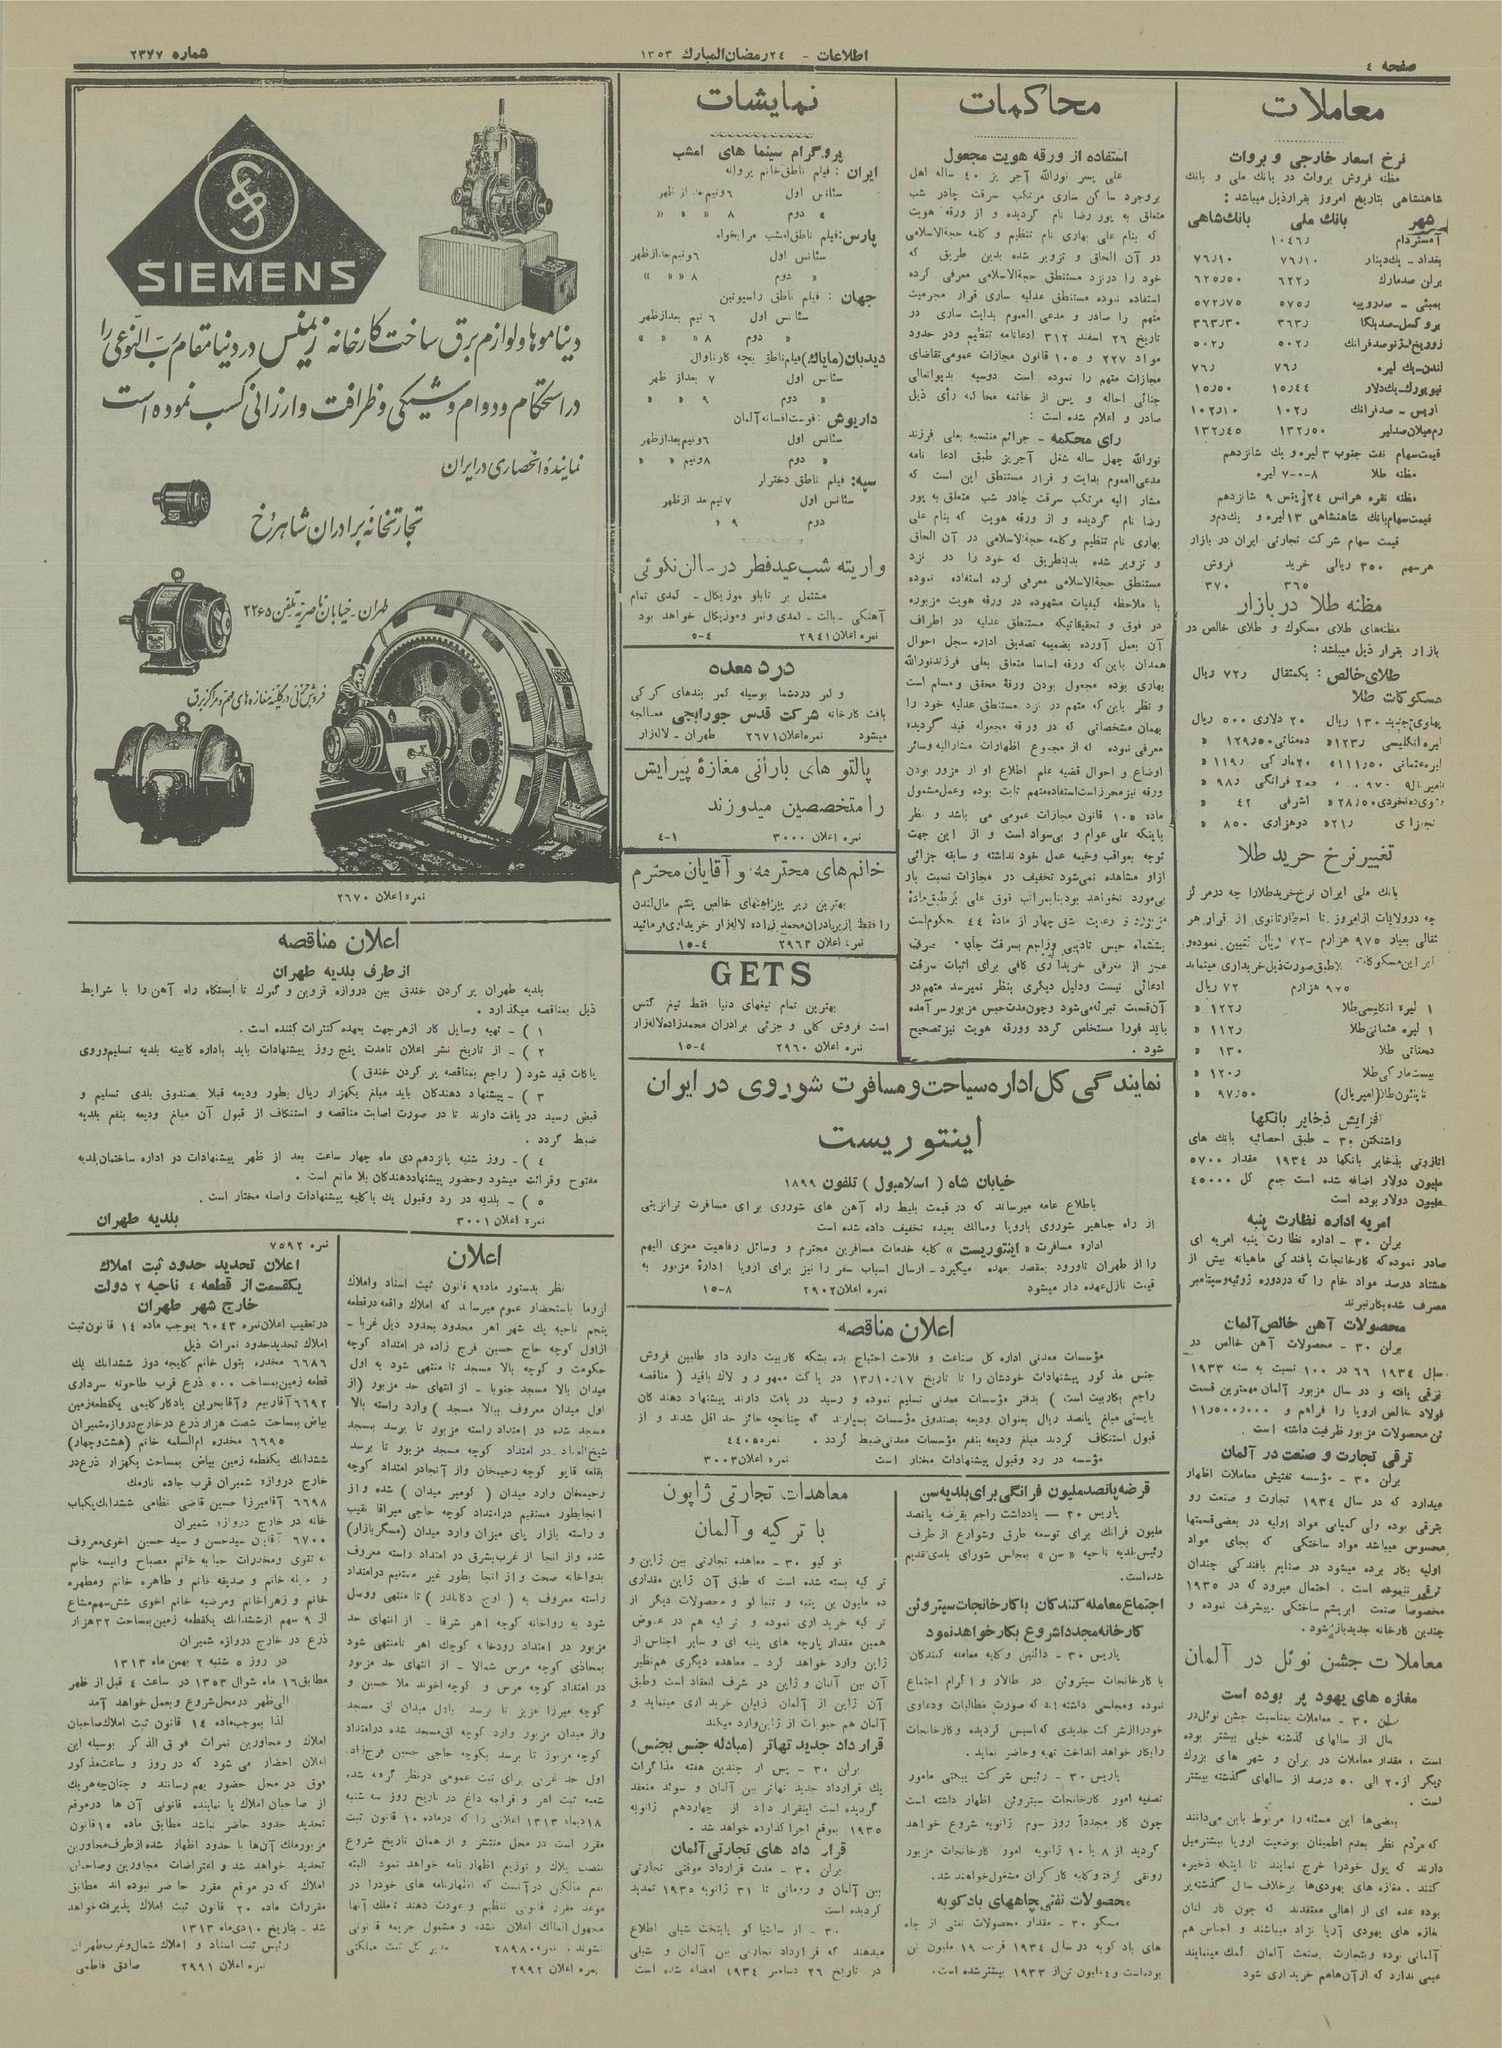 صفحه ٤
اطلاعات - ٢٤ رمضان المبارك ١٣٥٣
شماره ٢٣٧٧
معاملات
نرخ اسعار خارجی و بروات
مظنه فروش بروات در بانك ملی و بانك
شاهنشاهی بتاریخ امروز بقرار ذیل میباشد :
شهر بانك ملی بانك شاهی
آمستردام ١٠٤٦ر
بغداد - یك دینار ٧٦ر١٠ ٧٦ر١٠
برلن صدمارك ٦٢٢ر ٦٢٥ر٥٠
بمبئی - صدروپیه ٥٧٥ر ٥٧٢ر٧٥
بروكسل-صدبلگا ٣٦٣ر ٣٦٣ر٣٠
لندن-یك لیره ٧٦ر ٧٦ر
نیویورك-یك دلار ١٥ر٤٤ ١٥ر٥٠
پاریس - صدفرانك ١٠٢ر ١٠٢ر١٠
رم میلان صدلیر ١٣٢ر٥٠ ١٣٢ر٤٥
قیمت سهام نفت جنوب ٣ لیره و یك شانزدهم
مظنه طلا ٨-٠-٧ لیره
قیمت سهام شركت تجارتی ایران در بازار
هر سهم ٣٥٠ ریالی خرید فروش
٣٦٥ ٣٧٠
مظنه طلا در بازار
مظنه‌های طلای مسكوك و طلای خالص در
بازار بقرار ذیل میباشد :
طلای خالص : یكمثقال ٧٢ر ریال
مسكوكات طلا
پهلوی جدید ١٣٠ ریال ٢٠ دلاری ٥٠٠ ریال
تغییر نرخ خرید طلا
٩٧٥ هزارم ٧٢ ریال
١ لیره انگلیسی طلا ١٢٢ر «
١ لیره عثمانی طلا ١١٢ر «
دهمناتی طلا ١٣٠ «
بیست ماركی طلا ١٢٠ر «
ناپلئون طلا (امپریال) ٩٧ر٥٠ «
افزایش ذخایر بانكها
واشنگتن ٣٠ - طبق احصائیه بانك های
اتازونی بذخایر بانكها در ١٩٣٤ مقدار ٥٧٠٠
ملیون دولار اضافه شده است جمع كل ٤٥٠٠٠
ملیون دولار بوده است
امریه اداره نظارت پنبه
برلن ٣٠ - اداره نظارت پنبه امریه ای
صادر نموده كه كارخانجات بافندگی ماهیانه بیش از
هشتاد درصد مواد خام را كه دردوره ژوئیه وسپتامبر
مصرف شده بكار نبرند
محصولات آهن خالص آلمان
برلن ٣٠ - محصولات آهن خالص در
سال ١٩٣٤ ٦٦ در ١٠٠ نسبت به سنه ١٩٣٣
ترقی یافته و در سال مزبور آلمان مهمترین قسمت
فولاد خالص اروپا را فراهم و ١١ر٥٠٠ر٠٠٠
تن محصولات مزبور ظرفیت داشته است .
ترقی تجارت و صنعت در آلمان
برلن ٣٠ - مؤسسه تفتیش معاملات اظهار
میدارد كه در سال ١٩٣٤ تجارت و صنعت رو
بترقی بوده ولی كمیابی مواد اولیه در بعضی قسمتها
محسوس میباشد مواد ساختگی كه بجای مواد
اولیه بكار برده میشود در صنایع بافندگی چندان
ترقی ننموده است . احتمال میرود كه در ١٩٣٥
مخصوصا صنعت ابریشم ساختگی پیشرفت نموده و
چندین كارخانه جدید باز شود .
معاملات جشن نوئل در آلمان
مغازه های یهود پر بوده است
برلن ٣٠ - معاملات بمناسبت جشن نوئل در
سال از سالهای گذشته خیلی بیشتر بوده
است . مقدار معاملات در برلن و شهر های بزرك
دیگر از ٢٠ الی ٥٠ درصد از سالهای گذشته بیشتر
است .
بعضی‌ها این مسئله را مربوط باین میدانند
كه مردم نظر بعدم اطمینان بوضعیت اروپا بیشتر میل
دارند كه پول خودرا خرج نمایند تا اینكه ذخیره
كنند . مغازه های یهودی‌ها برخلاف سال گذشته پر
بوده عده ای از اهالی معتقدند كه چون كار كنان
مغازه های یهودی آریا نژاد میباشند و اجناس هم
آلمانی بوده وبتجارت وصنعت آلمان كمك مینمایند
عیبی ندارد كه از آن‌ها هم خریداری شود
محاكمات
استفاده از ورقه هویت مجعول
علی پسر نورالله آجر پز ٤٠ ساله اهل
بروجرد ساكن ساری مرتكب سرقت چادر شب
متعلق به پور رضا نام گردیده و از ورقه هویت
كه بنام علی بهاری نام تنظیم و كلمه حجةالاسلامی
در آن الحاق و تزویر شده بدین طریق كه
خود را درنزد مستنطق حجةالاسلامی معرفی كرده
استفاده نموده مستنطق عدلیه ساری قرار مجرمیت
متهم را صادر و مدعی العموم بدایت ساری در
تاریخ ٢٦ اسفند ٣١٢ ادعانامه تنظیم ودر حدود
مواد ٢٢٧ و ١٠٥ قانون مجازات عمومی تقاضای
مجازات متهم را نموده است دوسیه بدیوانعالی
جنائی احاله و پس از خاتمه محاكمه رأی ذیل
صادر و اعلام شده است :
رای محكمه - جرائم منتسبه بعلی فرزند
نورالله چهل ساله شغل آجرپز طبق ادعا نامه
مدعی‌العموم بدایت و قرار مستنطق این است كه
مشار الیه مرتكب سرقت چادر شب متعلق به پور
رضا نام گردیده و از ورقه هویت كه بنام علی
بهاری نام تنظیم وكلمه حجةالاسلامی در آن الحاق
و تزویر شده بدینطریق كه خود را در نزد
مستنطق حجةالاسلامی معرفی كرده استفاده نموده
با ملاحظه كیفیات مشهوده در ورقه هویت مزبوره
در فوق و تحقیقاتیكه مستنطق عدلیه در اطراف
آن بعمل آورده بضمیمه تصدیق اداره سجل احوال
همدان باین كه ورقه اساسا متعلق بعلی فرزند نورالله
بهاری بوده مجعول بودن ورقه محقق و مسلم است
و نظر باین كه متهم در نزد مستنطق عدلیه خود را
بهمان مشخصاتی كه در ورقه مجعوله قید گردیده
معرفی نموده كه از مجموع اظهارات مشارالیه وسائر
اوضاع و احوال قضیه علم اطلاع او از مزور بودن
ورقه نیز محرز است استفاده متهم ثابت بوده وعمل مشمول
ماده ١٠٥ قانون مجازات عمومی می باشد و نظر
باینكه علی عوام و بی‌سواد است و از این جهت
توجه بعواقب وخیمه عمل خود نداشته و سابقه جزائی
ازاو مشاهده نمی‌شود تخفیف در مجازات نسبت باو
بی‌مورد نخواهد بود بنابمراتب فوق علی بر طبق مادهٔ
مزبوره و رعایت شق چهار از مادهٔ ٤٤ محكوم است
بششماه حبس تادیبی وراجع بسرقت چادر صرف
عجز از معرفی خریداری كافی برای اثبات سرقت
ادعائی نیست ودلیل دیگری بنظر نمیرسد متهم در
آن قسمت تبرئه می‌شود وچون مدت حبس مزبور سر آمده
باید فورا مستخلص گردد وورقه هویت نیز تصحیح
شود .
نمایشات
پروگرام سینما های امشب
ایران : فیلم ناطق خانم پروانه
سئانس اول ٦ ونیم بعد از ظهر
« دوم ٨ « » «
پارس: فیلم ناطق امشب مرا بخواه
سئانس اول ٦ ونیم بعد از ظهر
« دوم ٨ « » «
جهان : فیلم ناطق راسپوتین
سئانس اول ٦ نیم بعداز ظهر
دوم ٨ « » «
دیدبان (مایاك) فیلم ناطق بچه كارناوال
سئانس اول ٧ بعداز ظهر
« دوم ٩ « »
داریوش : فوست افسانه آلمان
سئانس اول ٦ ونیم بعداز ظهر
« دوم ٨ ونیم » «
سپه: فیلم ناطق دختر ار
سئانس اول ٧ نیم بعد از ظهر
دوم ٩ «
واریته شب عید فطر در سالن نكوئی
مشتمل بر تابلو موزیكال - كمدی تمام
آهنگی - بالت - كمدی ونمر وموزیكال خواهد بود
نمره اعلان ٢٩٤١ ٤-٥
درد معده
و كمر دردشما بوسیله كمر بندهای كركی
بافت كارخانه شركت قدس جورابچی معالجه
میشود نمره اعلان ٢٦٧١ طهران - لاله‌زار
پالتو های بارانی مغازهٔ پیرایش
را متخصصین میدوزند
نمره اعلان ٣٠٠٠ ١-٤
خانم‌های محترمه و آقایان محترم
بهترین زیر پیراهنهای خالص پشم مال لندن
را فقط از برادران محمدزاده لاله‌زار خریداری فرمائید
نمره اعلان ٢٩٦٣ ٤-١٥
GETS
بهترین تمام تیغهای دنیا فقط تیغ گتس
است فروش كلی و جزئی برادران محمدزاده لاله‌زار
نمره اعلان ٢٩٦٠ ٤-١٥
نمایندگی كل اداره سیاحت و مسافرت شوروی در ایران
اینتوریست
خیابان شاه ( اسلامبول ) تلفون ١٨٩٩
باطلاع عامه میرساند كه در قیمت بلیط راه آهن های شوروی برای مسافرت ترانزیتی
از راه جماهیر شوروی باروپا وممالك بعیده تخفیف داده شده است
اداره مسافرت « اینتوریست » كلیه خدمات مسافرین محترم و وسائل رفاهیت معزی الیهم
را از طهران تاورود بمقصد بعهده میگیرد - ارسال اسباب سفر را نیز برای اروپا ادارهٔ مزبور به
قیمت نازل عهده دار میشود نمره اعلان ٢٩٠٢ ٨-١٥
اعلان مناقصه
مؤسسات معدنی اداره كل صناعت و فلاحت احتیاج بده بشكه كاربیت دارد دار طلبین فروش
جنس مذكور پیشنهادات خودشان را تا تاریخ ١٣/١٠/١٧ در پاكت ممهور و لاك باقید ( مناقصه
راجع بكاربیت است ) بدفتر مؤسسات معدنی تسلیم نموده و رسید در یافت دارند پیشنهاد دهند كان
بایستی مبلغ پانصد ریال بعنوان ودیعه بصندوق مؤسسات بسپارند كه چنانچه حائز حد اقل شدند و از
قبول استنكاف كردند مبلغ ودیعه بنفع مؤسسات معدنی ضبط گردد . نمره ٤٤٠٥
مؤسسه در رد وقبول پیشنهادات مختار است نمره اعلان ٣٠٠٣
قرضه پانصد ملیون فرانگی برای بلدیه سن
پاریس ٣٠ - یادداشت راجع بقرضه پانصد
ملیون فرانك برای توسعه طرق وشوارع از طرف
رئیس بلدیه ناحیه « سن » بمجلس شورای بلدی تقدیم
شده است .
اجتماع معامله كنندگان با كارخانجات سیتروئن
كارخانه مجددا شروع بكار خواهد نمود
پاریس ٣٠ - دائنین و كلیه معامله كنندگان
با كارخانجات سیتروئن در طالار و اگرام اجتماع
نموده ومجلسی داشته اند كه صورت مطالبات ودعاوی
خودرا از شركت جدیدی كه تاسیس گردیده و كارخانجات
را بكار خواهد انداخت تهیه و حاضر نماید .
پاریس ٣٠ - رئیس شركت مامور
تصفیه امور كارخانجات سیتروئن اظهار داشته است
چون كار مجدداً روز سوم ژانویه شروع خواهد
گردید از ٨ یا ١٠ ژانویه امور كارخانجات مزبور
رونقی گرفته و كلیه كار گران مشغول خواهند شد .
محصولات نفتی چاههای بادكوبه
مسكو ٣٠ - مقدار محصولات نفتی از چاه
های بادكوبه در سال ١٩٣٤ قریب ١٩ ملیون تن
بوده است و ٤ ملیون تن از ١٩٣٣ بیشتر شده است .
معاهدات تجارتی ژاپون
با تركیه و آلمان
توكیو ٣٠ - معاهده تجارتی بین ژاپن و
تركیه بسته شده است كه طبق آن ژاپن مقداری
ده ملیون ین پنبه و تنباكو و محصولات دیگر از
تركیه خریداری نموده و تركیه هم در عوض
همین مقدار پارچه های پنبه ای و سایر اجناس از
ژاپن وارد خواهد كرد - معاهده دیگری هم نظیر
آن بین آلمان و ژاپن در شرف انعقاد است وطبق
آن ژاپن از آلمان ژدیان خریداری مینماید و
آلمان هم حبوبات از ژاپن وارد میكند
قرارداد جدید تهاتر (مبادله جنس بجنس)
برلن ٣٠ - پس از چندین هفته مذاكرات
یك قرارداد جدید تهاتر بین آلمان و سوئد منعقد
گردیده است اینقرار داد از چهاردهم ژانویه
١٩٣٥ بموقع اجرا گذارده خواهد شد .
قرار داد های تجارتی آلمان
برلن ٣٠ - مدت قرارداد موقتی تجارتی
بین آلمان و رومانی تا ٣١ ژانویه ١٩٣٥ تمدید
گردیده است
٣٠ - از سانتیاگو پایتخت شیلی اطلاع
میدهند كه قرارداد تجارتی بین آلمان و شیلی
در تاریخ ٢٦ دسامبر ١٩٣٤ امضاء شده است
SIEMENS
دیناموها و لوازم برق ساخت كارخانه زیمنس در دنیا مقام رب النوعی را
در استحكام و دوام و شیكی و ظرافت و ارزانی كسب نموده است
نماینده انحصاری در ایران
تجارتخانه برادران شاهرخ
طهران - خیابان ناصریه تلفن ٢٢٦٥
فروش جزئی در كلیه مغازه های مهم و مراكز برق
نمره اعلان ٢٦٧٠
اعلان مناقصه
از طرف بلدیه طهران
بلدیه طهران پر كردن خندق بین دروازه قزوین و گمرك تا ایستگاه راه آهن را با شرایط
ذیل بمناقصه میگذارد .
١ ) - تهیه وسایل كار از هر جهت بعهده كنترات كننده است .
٢ ) - از تاریخ نشر اعلان تامدت پنج روز پیشنهادات باید باداره كابینه بلدیه تسلیم و روی
پاكات قید شود ( راجع بمناقصه پر كردن خندق )
٣ ) - پیشنهاد دهندكان باید مبلغ یكهزار ریال بطور ودیعه قبلا بصندوق بلدی تسلیم و
قبض رسید دریافت دارند تا در صورت اصابت مناقصه و استنكاف از قبول آن مبلغ ودیعه بنفع بلدیه
ضبط گردد .
٤ ) - روز شنبه پانزدهم دی ماه چهار ساعت بعد از ظهر پیشنهادات در اداره ساختمان بلدیه
مفتوح وقرائت میشود وحضور پیشنهاددهندكان بلا مانع است .
٥ ) - بلدیه در رد وقبول یك یا كلیه پیشنهادات واصله مختار است .
نمره اعلان ٣٠٠١ بلدیه طهران
اعلان
نظر بدستور ماده ٩ قانون ثبت اسناد واملاك
لزوما باستحضار عموم میرساند كه املاك واقعه درقطعه
پنجم ناحیه یك شهر اهر محدود بحدود ذیل غربا -
ازاول كوچه حاج حسین فرج زاده در امتداد كوچه
حكومت و كوچه بالا مسجد تا منتهی شود به اول
میدان بالا مسجد جنوبا - از انتهای حد مزبور (از
اول میدان معروف ببالا مسجد ) وارد راسته بالا
مسجد شده در امتداد راسته مزبور تا برسد بمسجد
شیخ العماد در امتداد كوچه مسجد مزبور تا برسد
بقلعه قاپو كوچه رحیمخان واز آنجا در امتداد كوچه
رحیمخان وارد میدان ( كومیر میدان ) شده و از
آنجا بطور مستقیم در امتداد كوچه حاجی میرآقا نقیب
و راسته بازار پای میزان وارد میدان (مسگر بازار)
شده و از آنجا از غرب بشرق در امتداد راسته معروف
بدواخانه صحت و از آنجا بطور غیر مستقیم درامتداد
راسته معروف به ( اوج دكانلار ) تا منتهی ووصل
شود به رودخانه كوچه اهر شرقا - از انتهای حد
مزبور در امتداد رودخانه كوچك اهر تا منتهی شود
بمحاذی كوچه مرس شمالا - از انتهای حد مزبور
در امتداد كوچه مرس و كوچه آخوند ملا حسین و
كوچه میرزا عزیز تا برسد باول میدان اق مسجد
واز میدان مزبور وارد كوچه اق مسجد شده درامتداد
كوچه مزبور تا برسد بكوچه حاجی حسین فرج زاد
اول حد غربی برای ثبت عمومی در نظر گرفته شده
شعبه ثبت اهر و قراجه داغ در تاریخ روز سه شنبه
١٨ دیماه ١٣١٣ اعلانی را كه درماده ١٠ قانون ثبت
مقرر است در محل منتشر و از همان تاریخ شروع
بنصب پلاك و توزیع اظهار نامه خواهد نمود البته
نفع مالكین در آنست كه اظهارنامه های خودرا در
موعد مقرر قانونی تنظیم و عودت دهند تا ملك آنها
مجهول المالك اعلان نشده و مشمول جریمه قانونی
نشوند . نمره ٢٨٩٨٠٩ مدیر كل ثبت مملكتی
نمره اعلان ٢٩٩٢
نمره ٧٥٩٢
اعلان تحدید حدود ثبت املاك
یكقسمت از قطعه ٤ ناحیه ٢ دولت
خارج شهر طهران
در تعقیب اعلان نمره ٦٠٤٣ بموجب ماده ١٤ قانون ثبت
املاك تحدید حدود نمرات ذیل
٦٦٨٦ مخدره بتول خانم كلیجه دوز ششدانك یك
قطعه زمین بمساحت ٥٠٠ ذرع قرب طاحونه سرداری
بیاض بمساحت شصت هزار ذرع در خارج دروازه شمیران
٦٦٩٥ مخدره ام‌السلمه خانم (هشت وچهار)
ششدانك یكقطعه زمین بیاض بمساحت یكهزار ذرع در
خارج دروازه شمیران قرب جاده نارمك
٦٦٩٨ آقا میرزا حسین قاضی نظامی ششدانك یكباب
خانه در خارج دروازه شمیران
٦٧٠٠ آقایان سیدحسن و سید حسین اخوی معروف
به تقوی ومخدرات خانم مصباح وانیسه خانم
خانم و صدیقه خانم و طاهره خانم ومطهره
خانم و زهرا خانم ومرضیه خانم اخوی شش سهم مشاع
از ٩ سهم از ششدانك یكقطعه زمین بمساحت ٣٢ هزار
ذرع در خارج دروازه شمیران
در روز ٥ شنبه ٢ بهمن ماه ١٣١٣
مطابق ١٦ ماه شوال ١٣٥٣ در ساعت ٤ قبل از ظهر
الی ظهر در محل شروع وبعمل خواهد آمد
لذا بموجب ماده ١٤ قانون ثبت املاك صاحبان
املاك و مجاورین نمرات فوق الذكر بوسیله این
اعلان احضار می شود كه در روز و ساعت مذكور
فوق در محل حضور بهم رسانند و چنانچه هریك
از صاحبان املاك یا نماینده قانونی آن ها در موقع
تحدید حدود حاضر نباشد مطابق ماده ١٥ قانون
مزبور ملك آن‌ها با حدود اظهار شده از طرف مجاورین
تحدید خواهد شد و اعتراضات مجاورین وصاحبان
املاك كه در موقع مقرر حاضر نبوده اند مطابق
مقررات ماده ٢٠ قانون ثبت املاك پذیرفته خواهد
شد - بتاریخ ١٠ دی ماه ١٣١٣
رئیس ثبت اسناد و املاك شمال و غرب طهران
نمره اعلان ٢٩٩١ صادق فاطمی